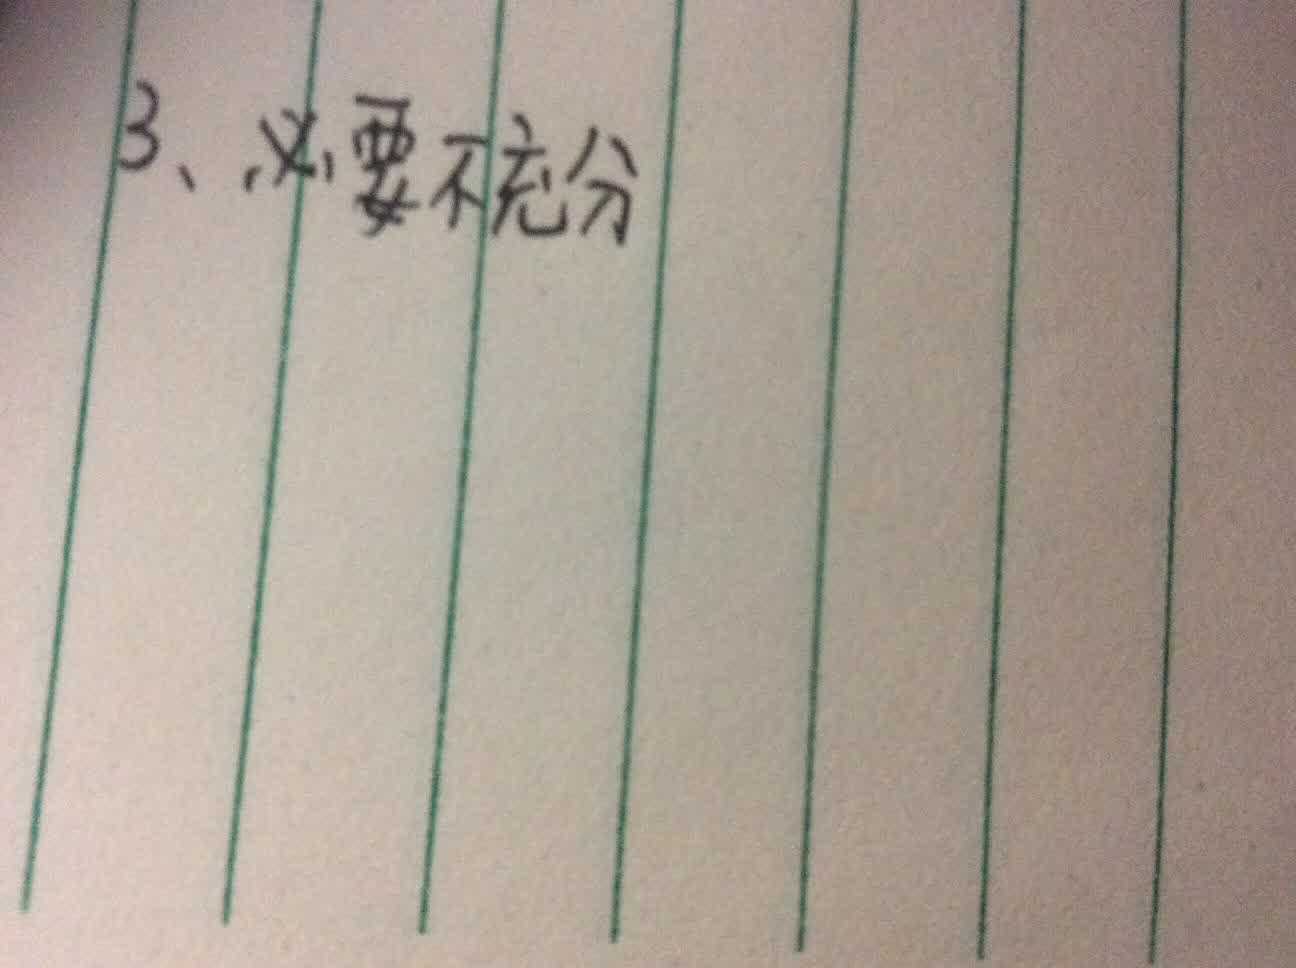 3、必要不充分